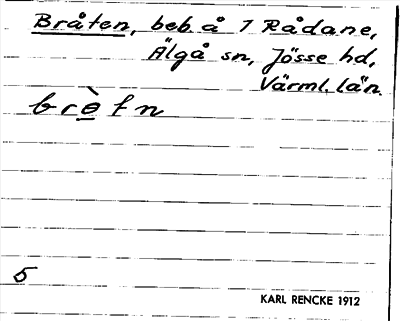 Bråten, beb. å 7 Rådane,
Älgå sn, Jösse hd,
Värml. län.
5
KARL RENCKE 1912